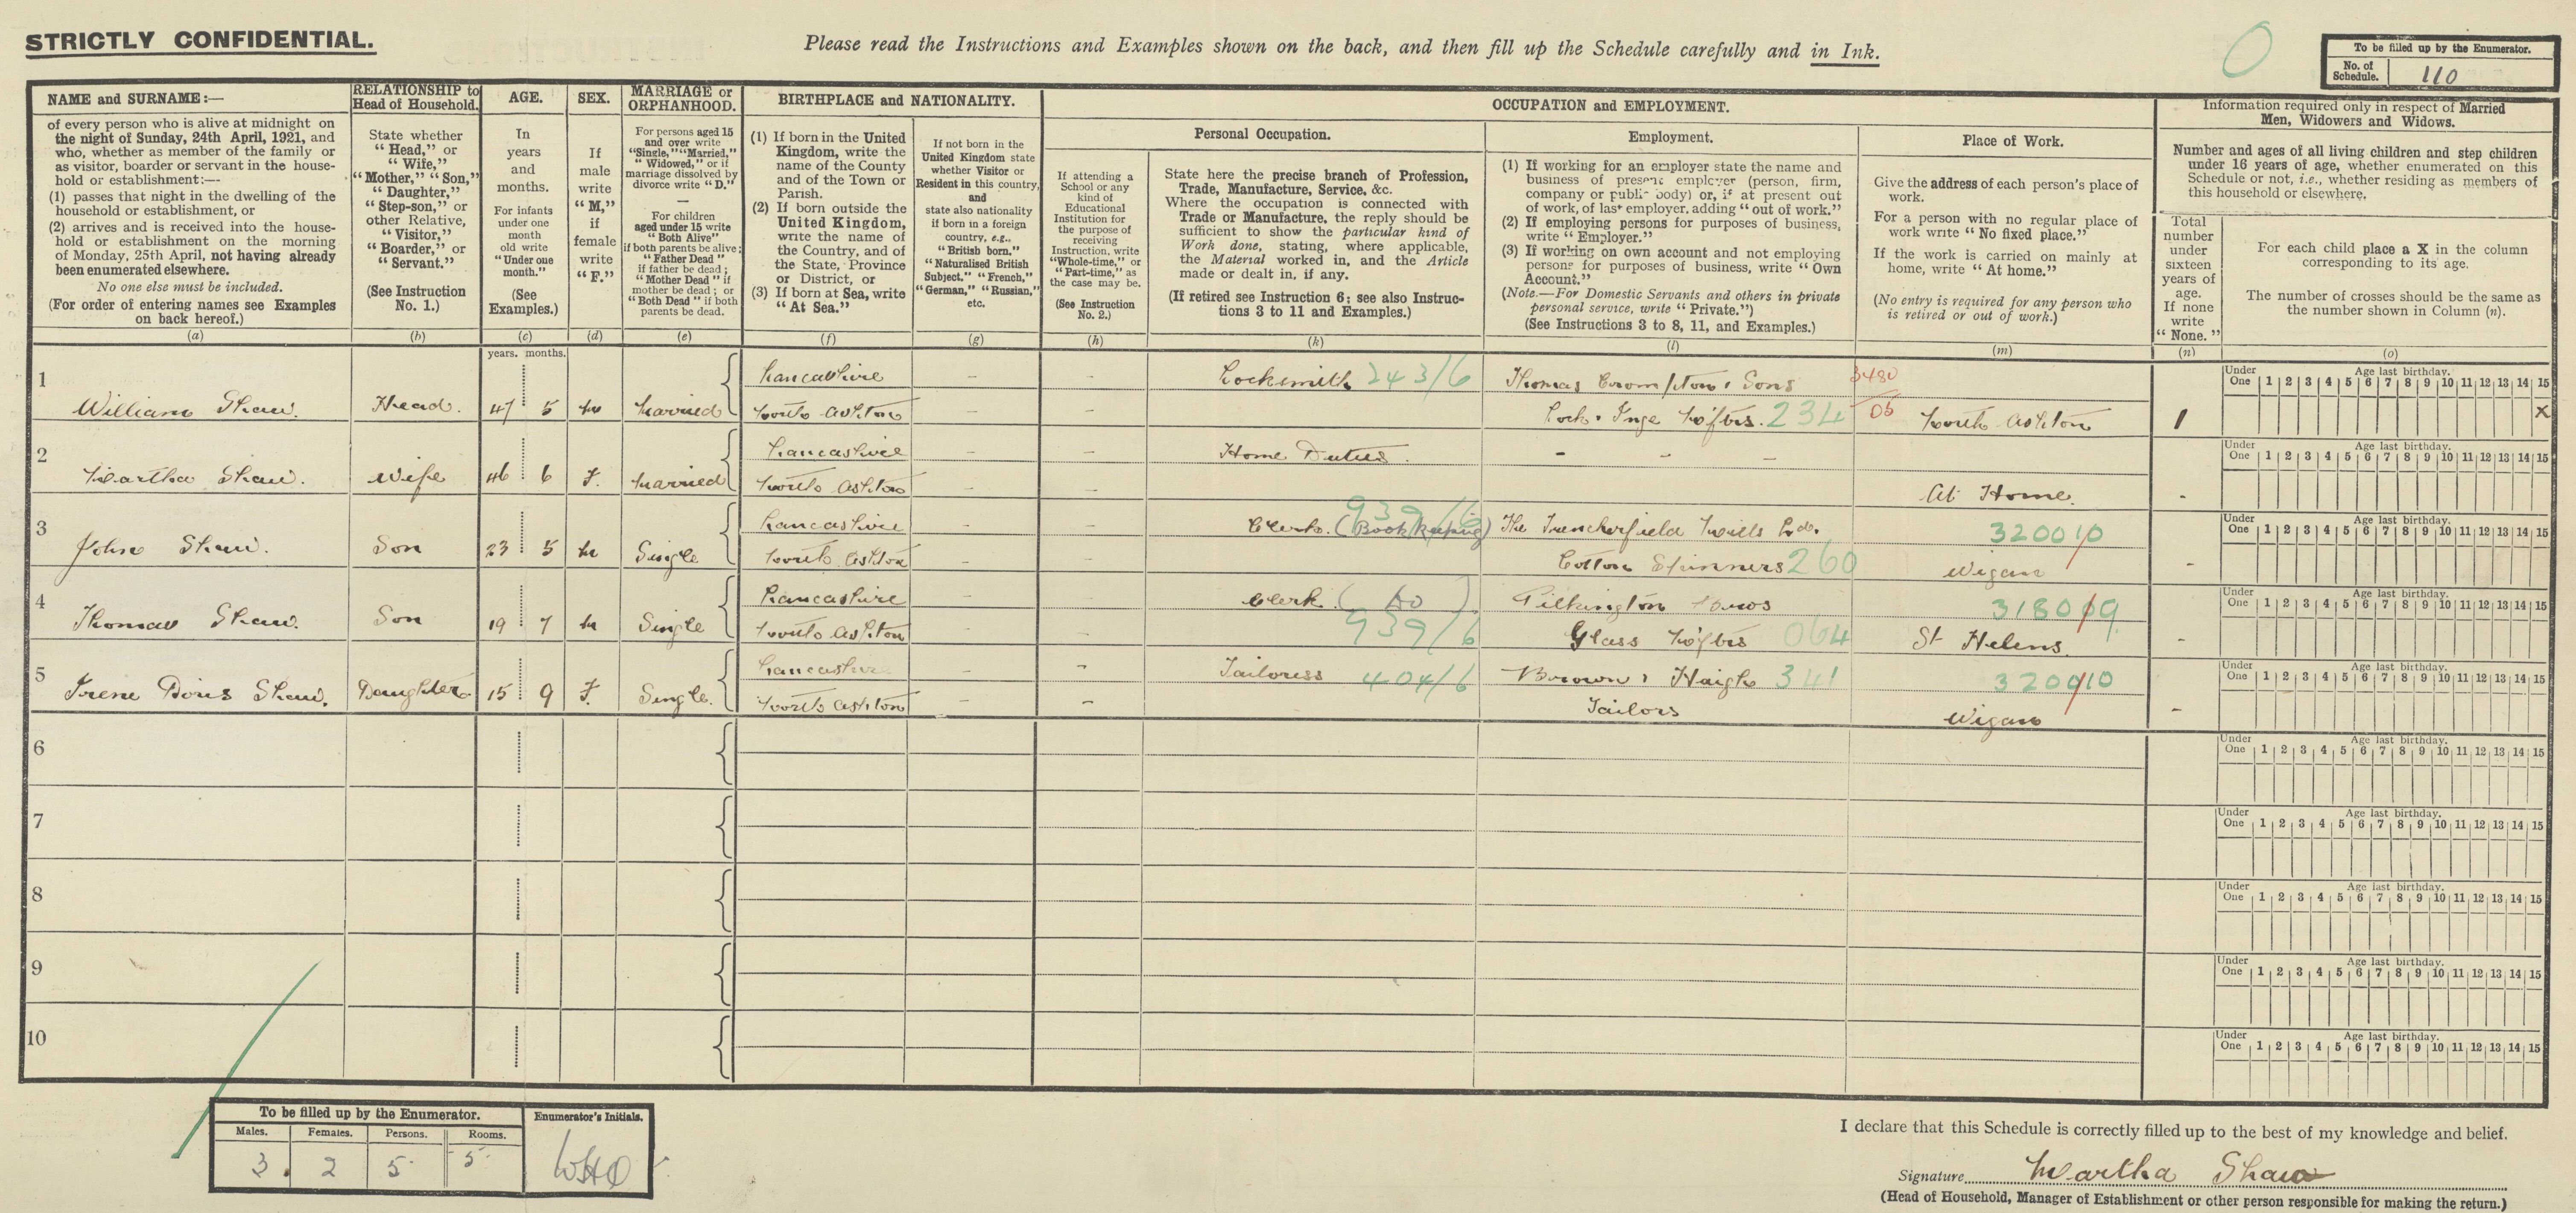 STRICTLY CONFIDENTIAL.
Please read the Instructions and Examples shown on the back, and then fill up the Schedule carefully and in Ink.
0
To be filled up by the Enumerator.
No. of Schedule. 110
NAME and SURNAME:—
of every person who is alive at midnight on
the night of Sunday, 24th April, 1921, and
who, whether as member of the family or
as visitor, boarder or servant in the house-
hold or establishment:—
(1) passes that night in the dwelling of the
household or establishment, or
(2) arrives and is received into the house-
hold or establishment on the morning
of Monday, 25th April, not having already
been enumerated elsewhere.
No one else must be included.
(For order of entering names see Examples
on back hereof.)
(a)
RELATIONSHIP to
Head of Household.
State whether
"Head," or
"Wife,"
"Mother," "Son,"
"Daughter,"
"Step-son," or
other Relative,
"Visitor,"
"Boarder," or
"Servant."
(See Instruction
No. 1.)
(b)
AGE.
In
years
and
months.
For infants
under one
month
old write
"Under one
month."
(See
Examples.)
(c)
SEX.
If
male
write
"M,"
if
female
write
"F."
(d)
MARRIAGE or
ORPHANHOOD.
For persons aged 15
and over write
"Single," "Married,"
"Widowed," or if
marriage dissolved by
divorce write "D."
—
For children
aged under 15 write
"Both Alive"
if both parents be alive;
"Father Dead"
if father be dead;
"Mother Dead" if
mother be dead; or
"Both Dead" if both
parents be dead.
(e)
BIRTHPLACE and NATIONALITY.
(1) If born in the United
Kingdom, write the
name of the County
and of the Town or
Parish.
(2) If born outside the
United Kingdom,
write the name of
the Country, and of
the State, Province
or District, or
(3) If born at Sea, write
"At Sea."
(f)
If not born in the
United Kingdom state
whether Visitor or
Resident in this country,
and
state also nationality
if born in a foreign
country, e.g.,
"British born,"
"Naturalised British
Subject," "French,"
"German," "Russian,"
etc.
(g)
OCCUPATION and EMPLOYMENT.
If attending a
School or any
kind of
Educational
Institution for
the purpose of
receiving
Instruction, write
"Whole-time," or
"Part-time," as
the case may be.
(See Instruction
No. 2.)
(h)
Personal Occupation.
State here the precise branch of Profession,
Trade, Manufacture, Service, &c.
Where the occupation is connected with
Trade or Manufacture, the reply should be
sufficient to show the particular kind of
Work done, stating, where applicable,
the Material worked in, and the Article
made or dealt in, if any.
(If retired see Instruction 6; see also Instruc-
tions 3 to 11 and Examples.)
(k)
Employment.
(1) If working for an employer state the name and
business of present employer (person, firm,
company or public body) or, if at present out
of work, of last employer, adding "out of work."
(2) If employing persons for purposes of business,
write "Employer."
(3) If working on own account and not employing
persons for purposes of business, write "Own
Account."
(Note.—For Domestic Servants and others in private
personal service, write "Private.")
(See Instructions 3 to 8, 11, and Examples.)
(l)
Place of Work.
Give the address of each person's place of
work.
For a person with no regular place of
work write "No fixed place."
If the work is carried on mainly at
home, write "At home."
(No entry is required for any person who
is retired or out of work.)
(m)
Information required only in respect of Married
Men, Widowers and Widows.
Number and ages of all living children and step children
under 16 years of age, whether enumerated on this
Schedule or not, i.e., whether residing as members of
this household or elsewhere.
Total
number
under
sixteen
years of
age.
If none
write
"None."
(n)
For each child place a X in the column
corresponding to its age.
The number of crosses should be the same as
the number shown in Column (n).
(o)
years. months.
1 Lancashire – – Locksmith 243/6 Thomas Crompton & Sons 3480 Under One Age last birthday. 1 2 3 4 5 6 7 8 9 10 11 12 13 14 15
William Shaw. Head. 47 5 M Married North Ashton – – Lock & Inge M'f'trs. 234 05 North Ashton 1 X
2 Lancashire – – Home Duties. – – – Under One Age last birthday. 1 2 3 4 5 6 7 8 9 10 11 12 13 14 15
Martha Shaw. Wife 46 6 F. Married North Ashton – – At Home. -
3 Lancashire – – Clerk. (Bookkeeping) 939/6 The Trencherfield Mills Ld. 320010 Under One Age last birthday. 1 2 3 4 5 6 7 8 9 10 11 12 13 14 15
John Shaw. Son 23 5 M Single North Ashton – – Cotton Spinners 260 Wigan -
4 Lancashire – – Clerk (Do) Pilkington Bros 318009 Under One Age last birthday. 1 2 3 4 5 6 7 8 9 10 11 12 13 14 15
Thomas Shaw. Son 19 7 M Single North Ashton – – 939/6 Glass M'f'trs 064 St Helens. -
5 Lancashire – – Tailoress 404/6 Brown & Haigh 341 320010 Under One Age last birthday. 1 2 3 4 5 6 7 8 9 10 11 12 13 14 15
Irene Doris Shaw. Daughter 15 9 F. Single. North Ashton – – Tailors Wigan -
6 Under One Age last birthday. 1 2 3 4 5 6 7 8 9 10 11 12 13 14 15
7 Under One Age last birthday. 1 2 3 4 5 6 7 8 9 10 11 12 13 14 15
8 Under One Age last birthday. 1 2 3 4 5 6 7 8 9 10 11 12 13 14 15
9 Under One Age last birthday. 1 2 3 4 5 6 7 8 9 10 11 12 13 14 15
10 Under One Age last birthday. 1 2 3 4 5 6 7 8 9 10 11 12 13 14 15
To be filled up by the Enumerator.
Males. Females. Persons. Rooms.
3 2 5 5
Enumerator's Initials.
I declare that this Schedule is correctly filled up to the best of my knowledge and belief.
Signature Martha Shaw
(Head of Household, Manager of Establishment or other person responsible for making the return.)